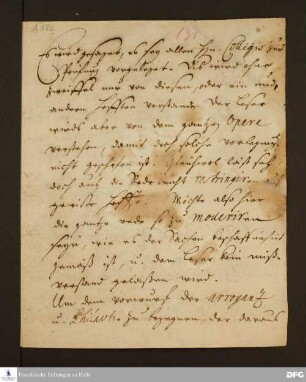 131
Es wird gesaget, es sey allen Hn. Collegis zur
Prüfung vorgeleget. Das wird aber
nur von diesem, oder ein und
andren verstanden. Der Leser
wirds aber von dem gantzen Opere
verstehen, damit doch solche
nicht geschehen ist. Gleichwol läst sich
doch auch die Rede nicht restringiren
gewisse Möchte also hier
die gantze rede so zu moderiren
seyn, wie es der Sachen beschaffenheit
gemäß ist, u. dem Leser kein miß-
verstand gelaßen wird.
Um dem vorwurf der arrogantz
u. Philautie zu begegnen, der daraus
Franckesche Stiftungen zu Halle
DFG